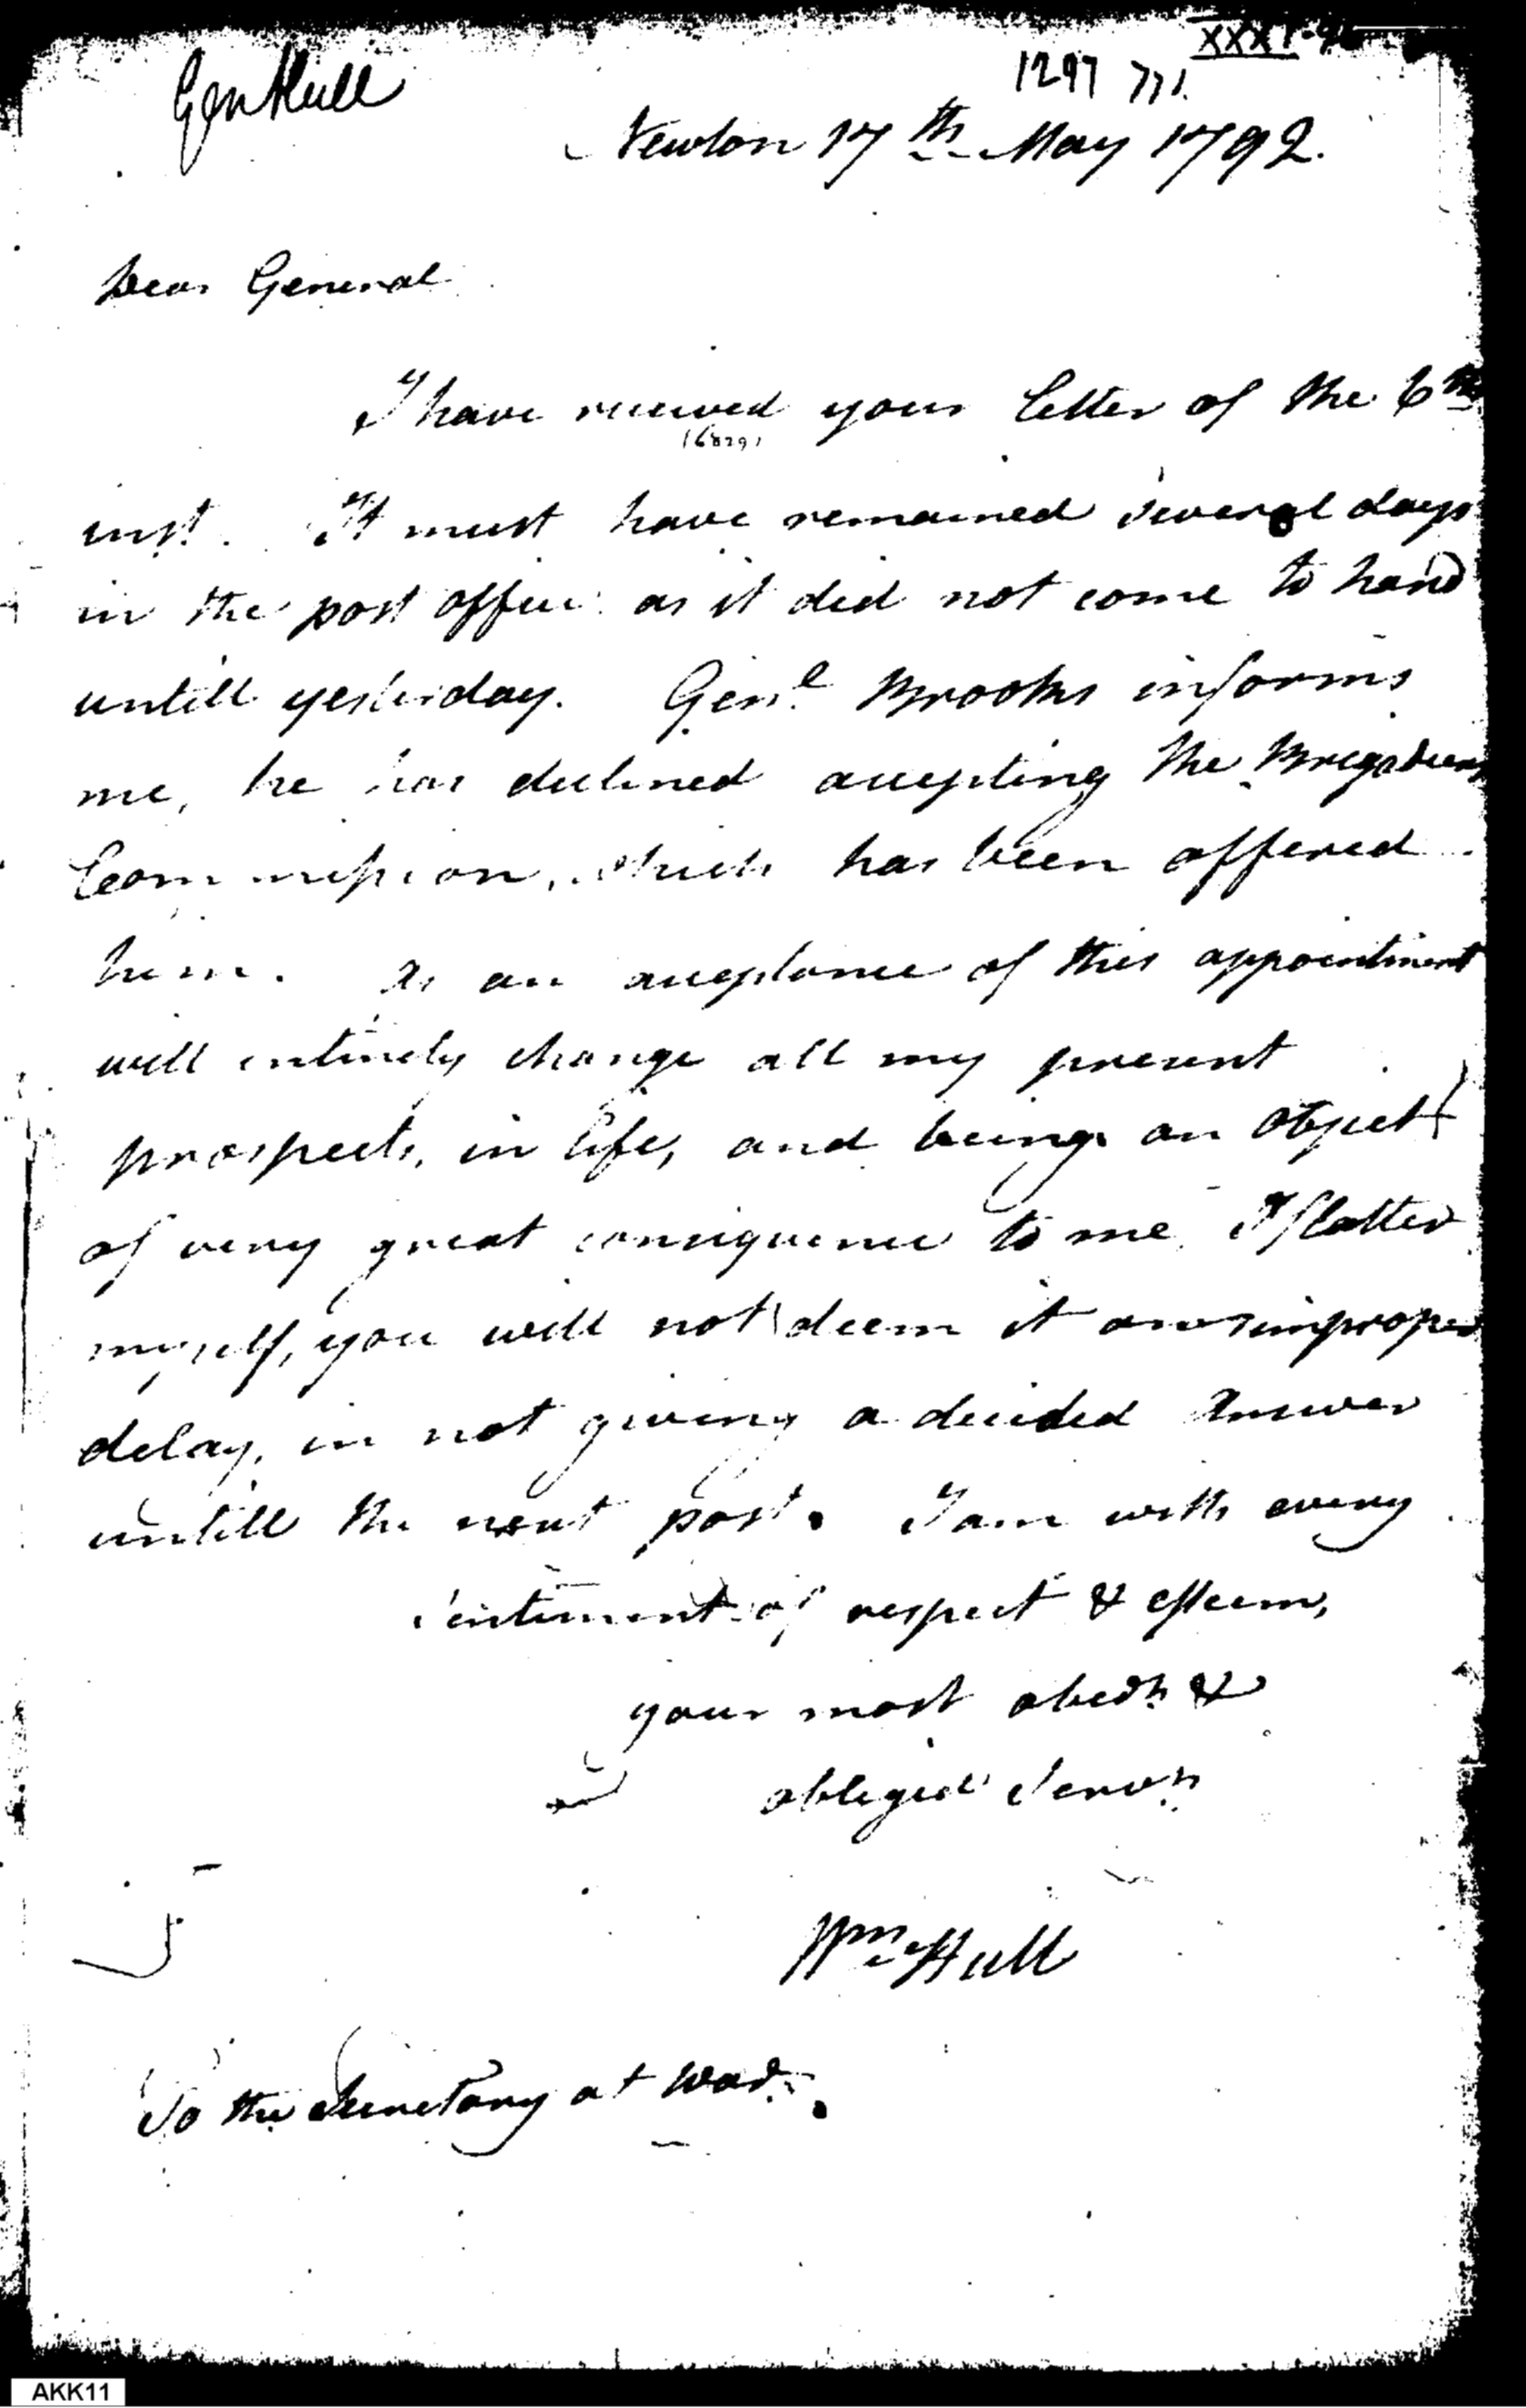 Gen Hull
XXXI
1297 771.
Newton 17th May 1792.
Dear General
I have received your letter of the 6th
inst. It must have remained several days
in the post office as it did not come to hand
untill yesterday. Genl Brooks informs
me, he has declined accepting the Brigadiers
Commission, which has been offered
him. As an acceptance of this appointment
will intirely change all my present
prospects, in life, and being an object
of very great consequence to me, I flatter
myself, you will not deem it an improper
delay, in not giving a decided answer
untill the next post. I am with every
sentiment of respect & esteem,
your most obedt &
obliged Servt
Wm Hull
To the Secretary at War.
AKK11